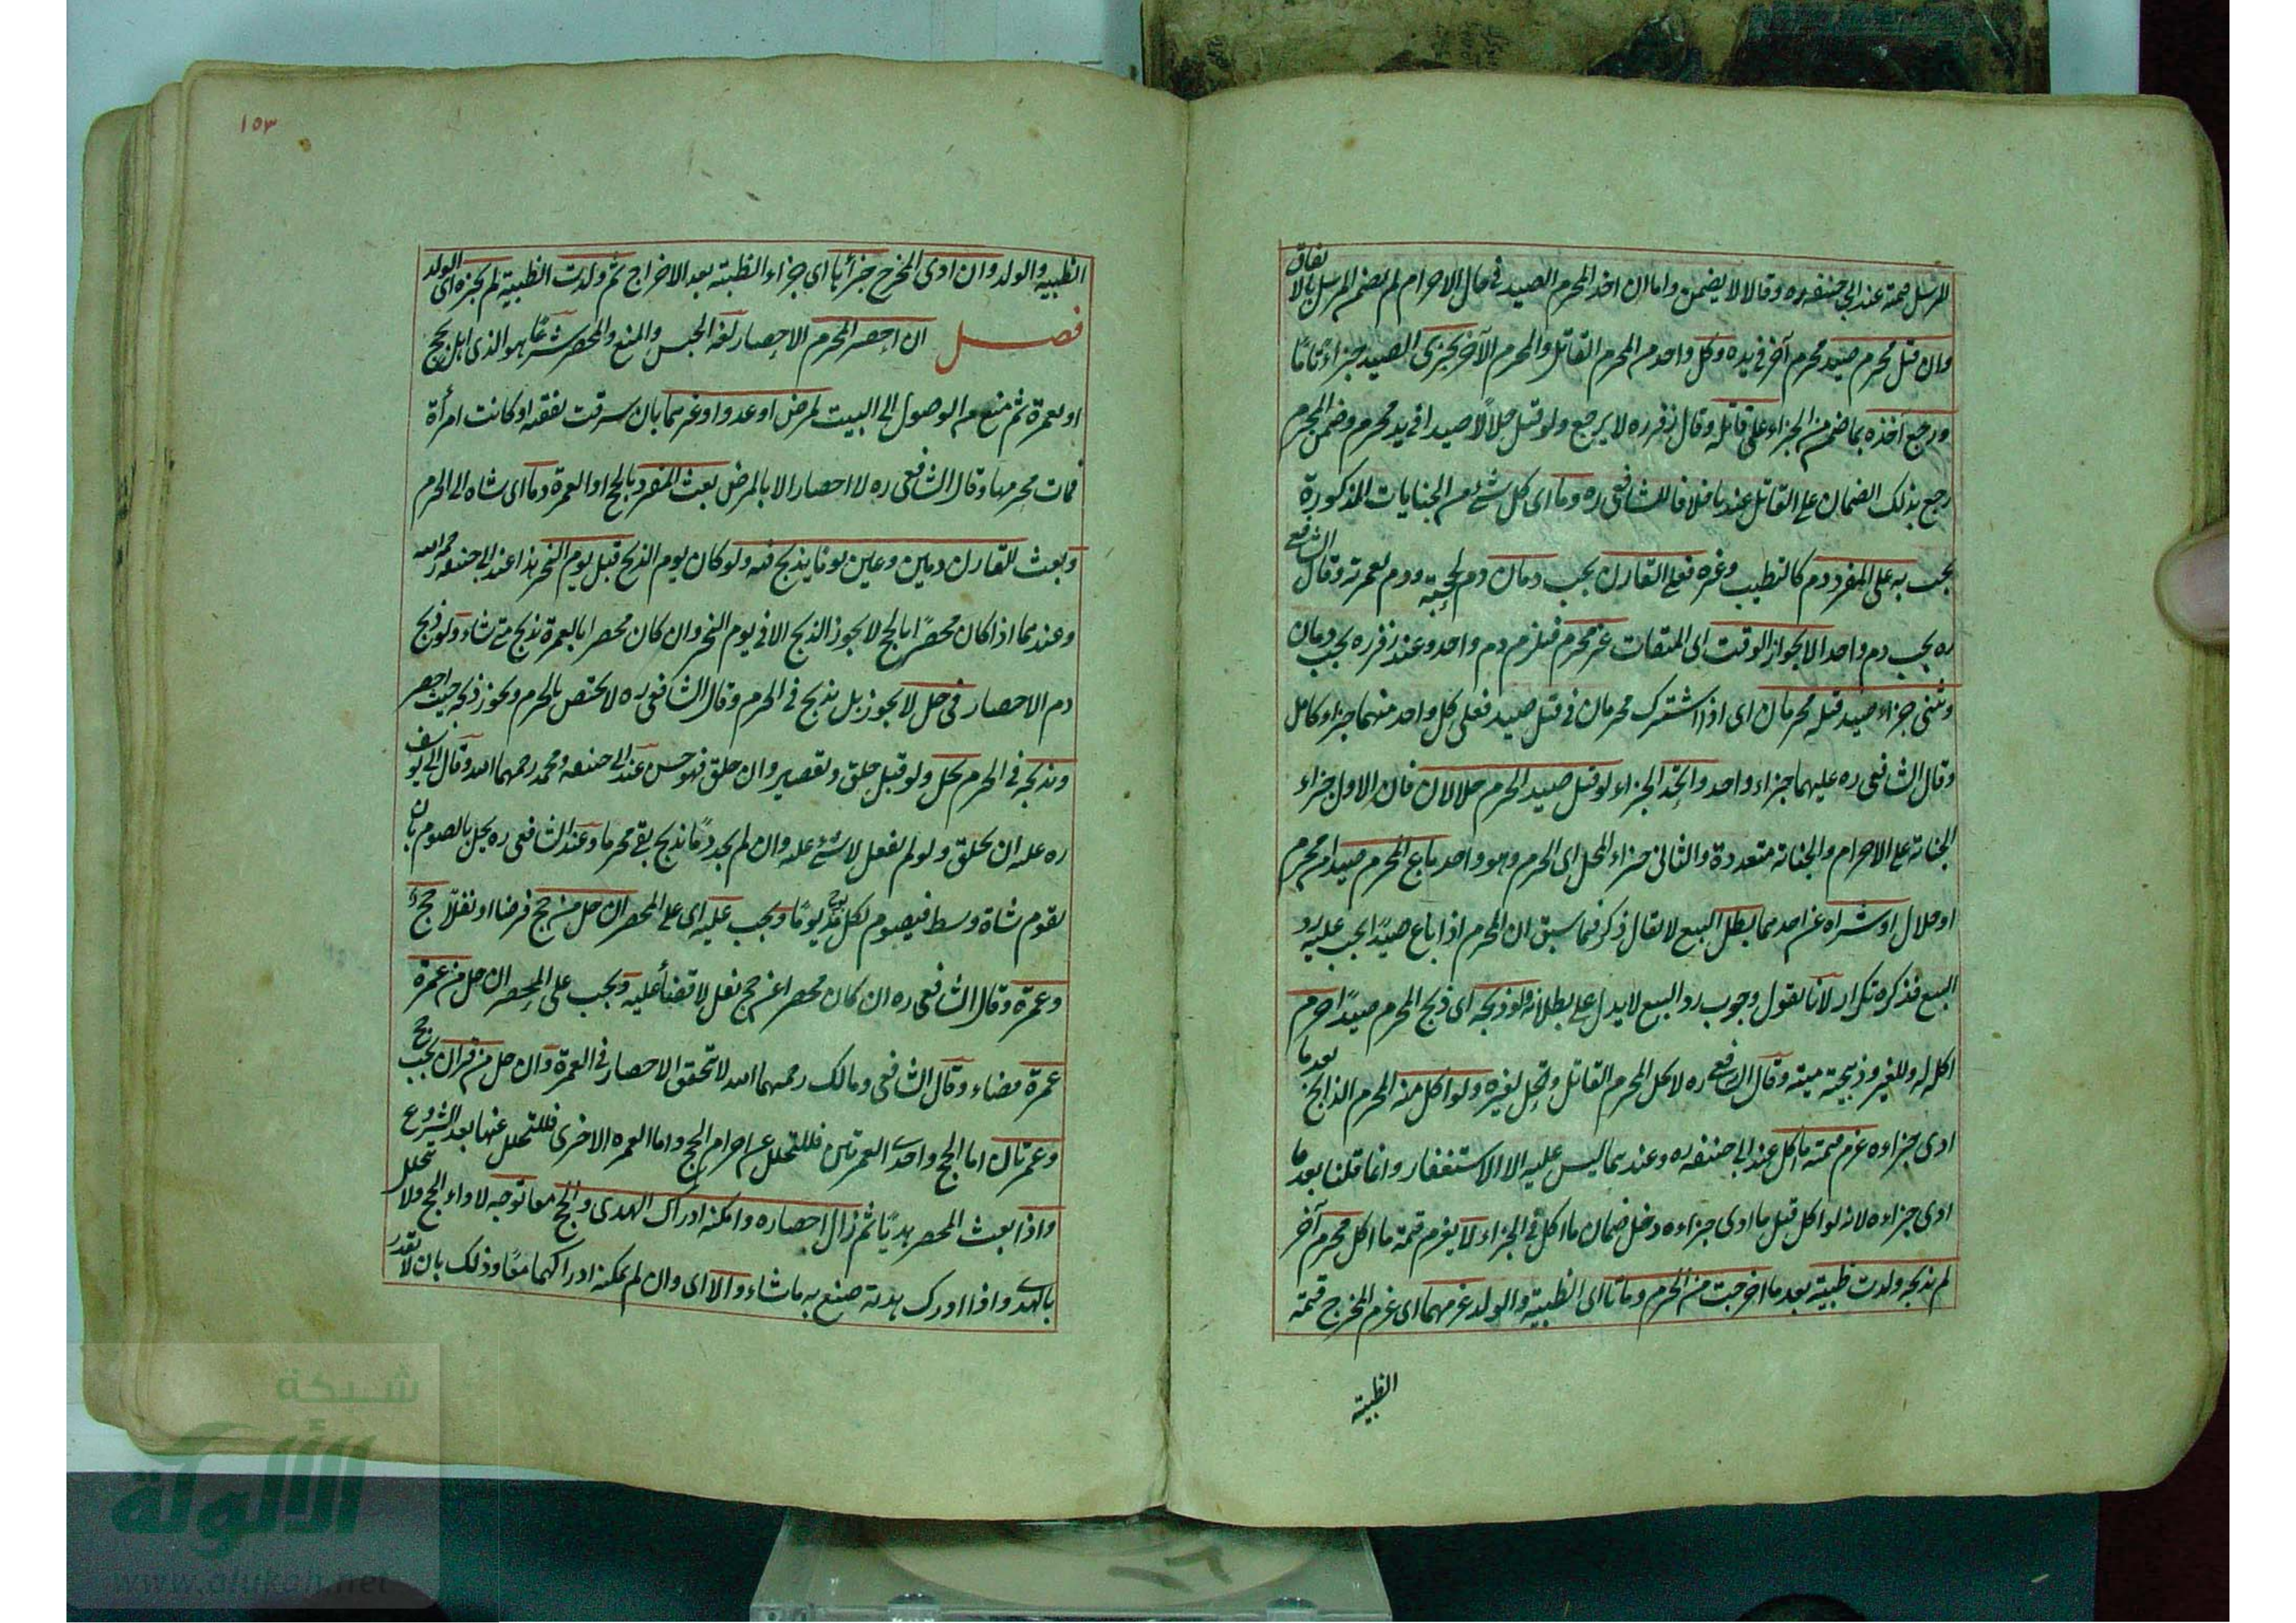 المرسل قيمته عند ابي حنيفة ره وقالا لا يضمن واما ان اخذ المحرم الصيد في حال الاحرام لم يضمن المرسل بالاتفاق
وان قتل محرم صيد محرم آخر في يده وكل واحد من المحرم القاتل والمحرم الآخر يجزى الصيد جزاء تاما
ورجع آخذه بما ضمن من الجزاء على قاتله وقال زفر ره لا يرجع ولو قتل حلالا صيدا في يد محرم وضمن المحرم
رجع بذلك الضمان على القاتل عندنا خلافا للشافعى ره وما اى كل شئ من الجنايات المذكورة
يجب به على المفرد دم كالتطيب وغيره فعلى القارن يجب دمان دم لحجته ودم لعمرته وقال الشافعي
ره يجب دم واحد الا بجواز الوقت اى الميقات غير محرم فيلزم دم واحد وعند زفر ره يجب دمان
وثنى جزاء صيد قتله محرمان اى اذا اشترك محرمان في قتل صيد فعلى كل واحد منهما جزاء كامل
وقال الشافعى ره عليهما جزاء واحد واتحد الجزاء لو قتل صيد الحرم حلالان فان الاول جزاء
الجناية على الاحرام والجناية متعددة والثانى جزاء المحل اى الحرم وهو واحد باع المحرم صيدا من محرم
او حلال او شراه من احدهما بطل البيع لا يقال ذكر فيما سبق ان المحرم اذا باع صيدا يجب عليه رد
البيع فذكره تكرار لانا نقول وجوب رد البيع لا يدل على بطلانه ولو ذبحه اى ذبح المحرم صيدا حرم
اكله له وللغير وذبيحته ميتة وقال الشافعي ره لا يحل المحرم القاتل ويحل لغيره ولو اكل منه المحرم الذابح بعد ما
ادى جزاءه غرم قيمة ما اكل عند ابى حنيفة ره وعندهما ليس عليه الا الاستغفار وانما قلنا بعد ما
ادى جزاءه لانه لو اكل قبل ما ادى جزاءه دخل ضمان ما اكل في الجزاء لا يغرم قيمة ما اكل محرم آخر
لم يذبحه ولدت ظبية بعد ما اخرجت من الحرم وماتا اى الظبية والولد غرمهما اى غرم المخرج قيمة
الظبية
١٥٣
الظبية والولد وان ادى المخرج جزأها اى جزاء الظبية بعد الاخراج ثم ولدت الظبية لم يجزه اى الولد
فصل ان احصر المحرم الاحصار لغة الحبس والمنع والمحصر شرعا هو الذى اهل بحج
او بعمرة ثم منع من الوصول الى البيت لمرض او عدو او غيرهما بان سرقت نفقته او كانت امرأة
فمات محرمها وقال الشافعى ره لا احصار الا بالمرض بعث المفرد بالحج او العمرة دما اى شاة الى الحرم
وبعث القارن دمين وعين يوما يذبح فيه ولو كان يوم الذبح قبل يوم النحر هذا عند ابى حنيفة رحمه الله
وعندهما اذا كان محصرا بالحج لا يجوز الذبح الا في يوم النحر وان كان محصرا بالعمرة يذبح متى شاء ولو ذبح
دم الاحصار في حل لا يجوز بل يذبح في الحرم وقال الشافعى ره لا يختص بالحرم ويجوز ذبحه حيث احصر
وبذبحه في الحرم يحل ولو قبل حلق وتقصير وان حلق فهو حسن عند ابى حنيفة ومحمد رحمهما الله وقال ابى يوسف
ره عليه ان يحلق ولو لم يفعل لا شئ عليه وان لم يجد دما يذبح بقى محرما وعند الشافعى ره يحل بالصوم بان
يقوم شاة وسط فيصوم لكل مد يوما ويجب عليه اى على المحصر ان حل من حج فرضا او نفلا حج
وعمرة وقال الشافعى ره ان كان محصرا عن حج نفل لا قضأ عليه ويجب على المحصر ان حل من عمرة
عمرة قضاء وقال الشافعى ومالك رحمهما الله لا يتحقق الاحصار في العمرة وان حل من قران يجب حج
وعمرتان اما الحج واحدى العمرتين فللتحلل عن احرام الحج واما العمرة الاخرى فللتحلل عنها بعد الشروع
واذا بعث المحصر هديا ثم زال احصاره وامكنه ادراك الهدى والحج معا توجه لاداء الحج ولا يتحلل
بالهدى واذا ادرك هديه صنع به ما شاء والا اى وان لم يمكنه ادراكهما معا وذلك بان لا يقدر
شبكة
الألوكة
www.alukah.net